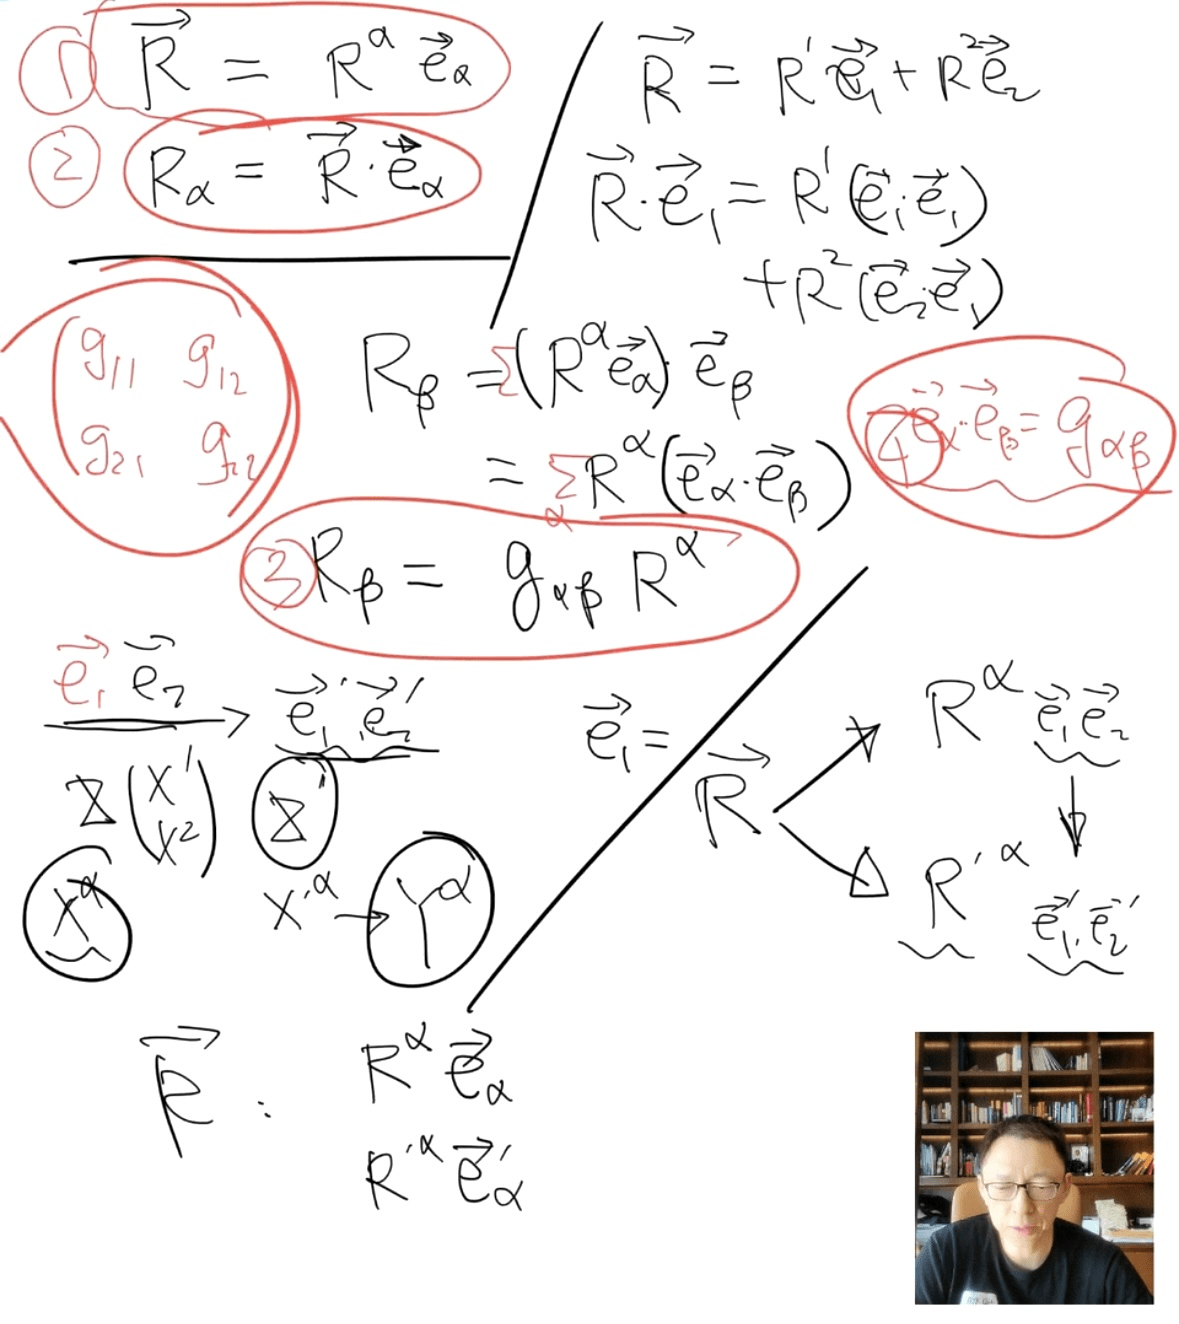 ① R⃗ = R^α e⃗_α
② R_α = R⃗ · e⃗_α
R⃗ = R^1 e⃗_1 + R^2 e⃗_2
R⃗ · e⃗_1 = R^1 (e⃗_1 · e⃗_1)
+ R^2 (e⃗_2 · e⃗_1)
g_11 g_12
g_21 g_22
R_β = Σ (R^α e⃗_α) · e⃗_β
= Σ_α R^α (e⃗_α · e⃗_β)
④ e⃗_α · e⃗_β = g_αβ
③ R_β = g_αβ R^α
e⃗_1 e⃗_2 → e⃗_1' e⃗_2'
(x^1
x^2)
X^α
x'^α → Y^α
e⃗_1 =
R⃗
R^α e⃗_1 e⃗_2
R'^α e⃗_1', e⃗_2'
R⃗ : R^α e⃗_α
R'^α e⃗'_α